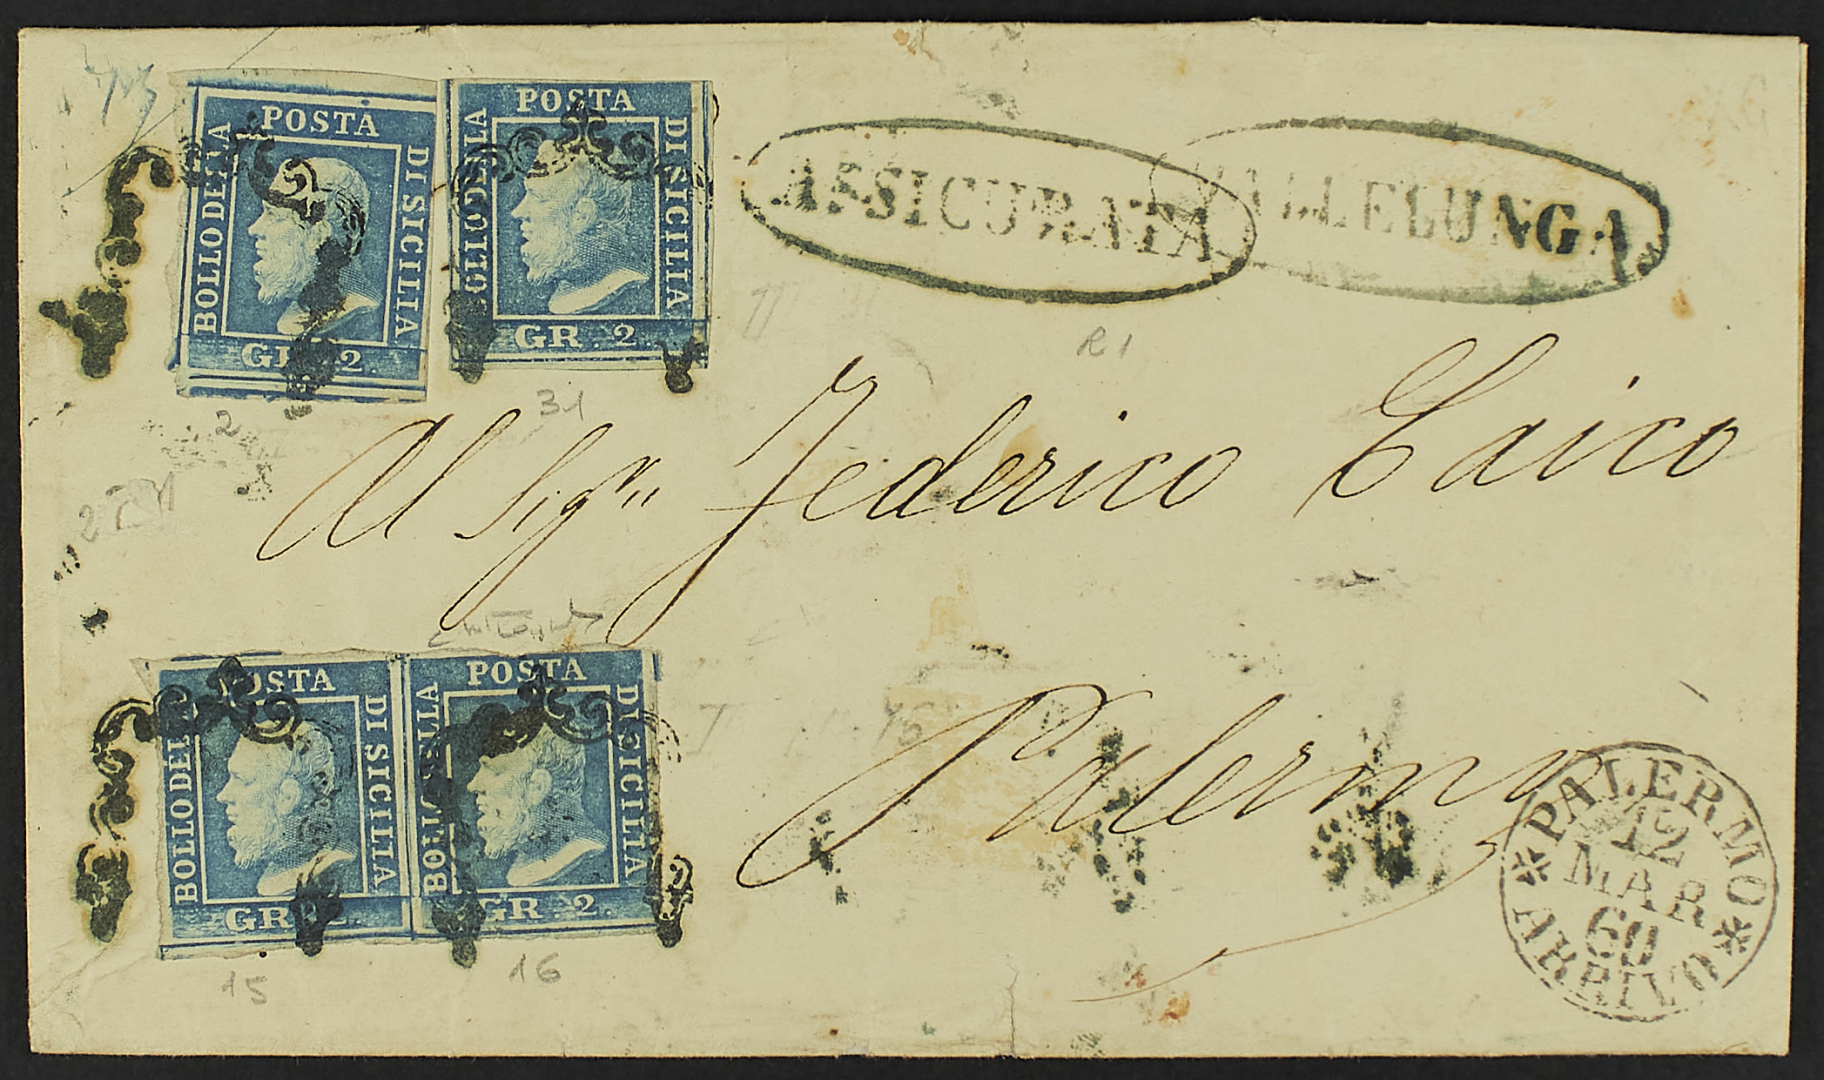 POSTA
BOLLO DELLA
DI SICILIA
GR. 2
POSTA
BOLLO DELLA
DI SICILIA
GR. 2
ASSICURATA
VALLELUNGA
R1
2
31
Al Sigr Federico Caico
POSTA
BOLLO DELLA
DI SICILIA
GR. 2.
POSTA
BOLLO DELLA
DI SICILIA
GR. 2.
15
16
Palermo
PALERMO
12
MAR
60
ARRIVO